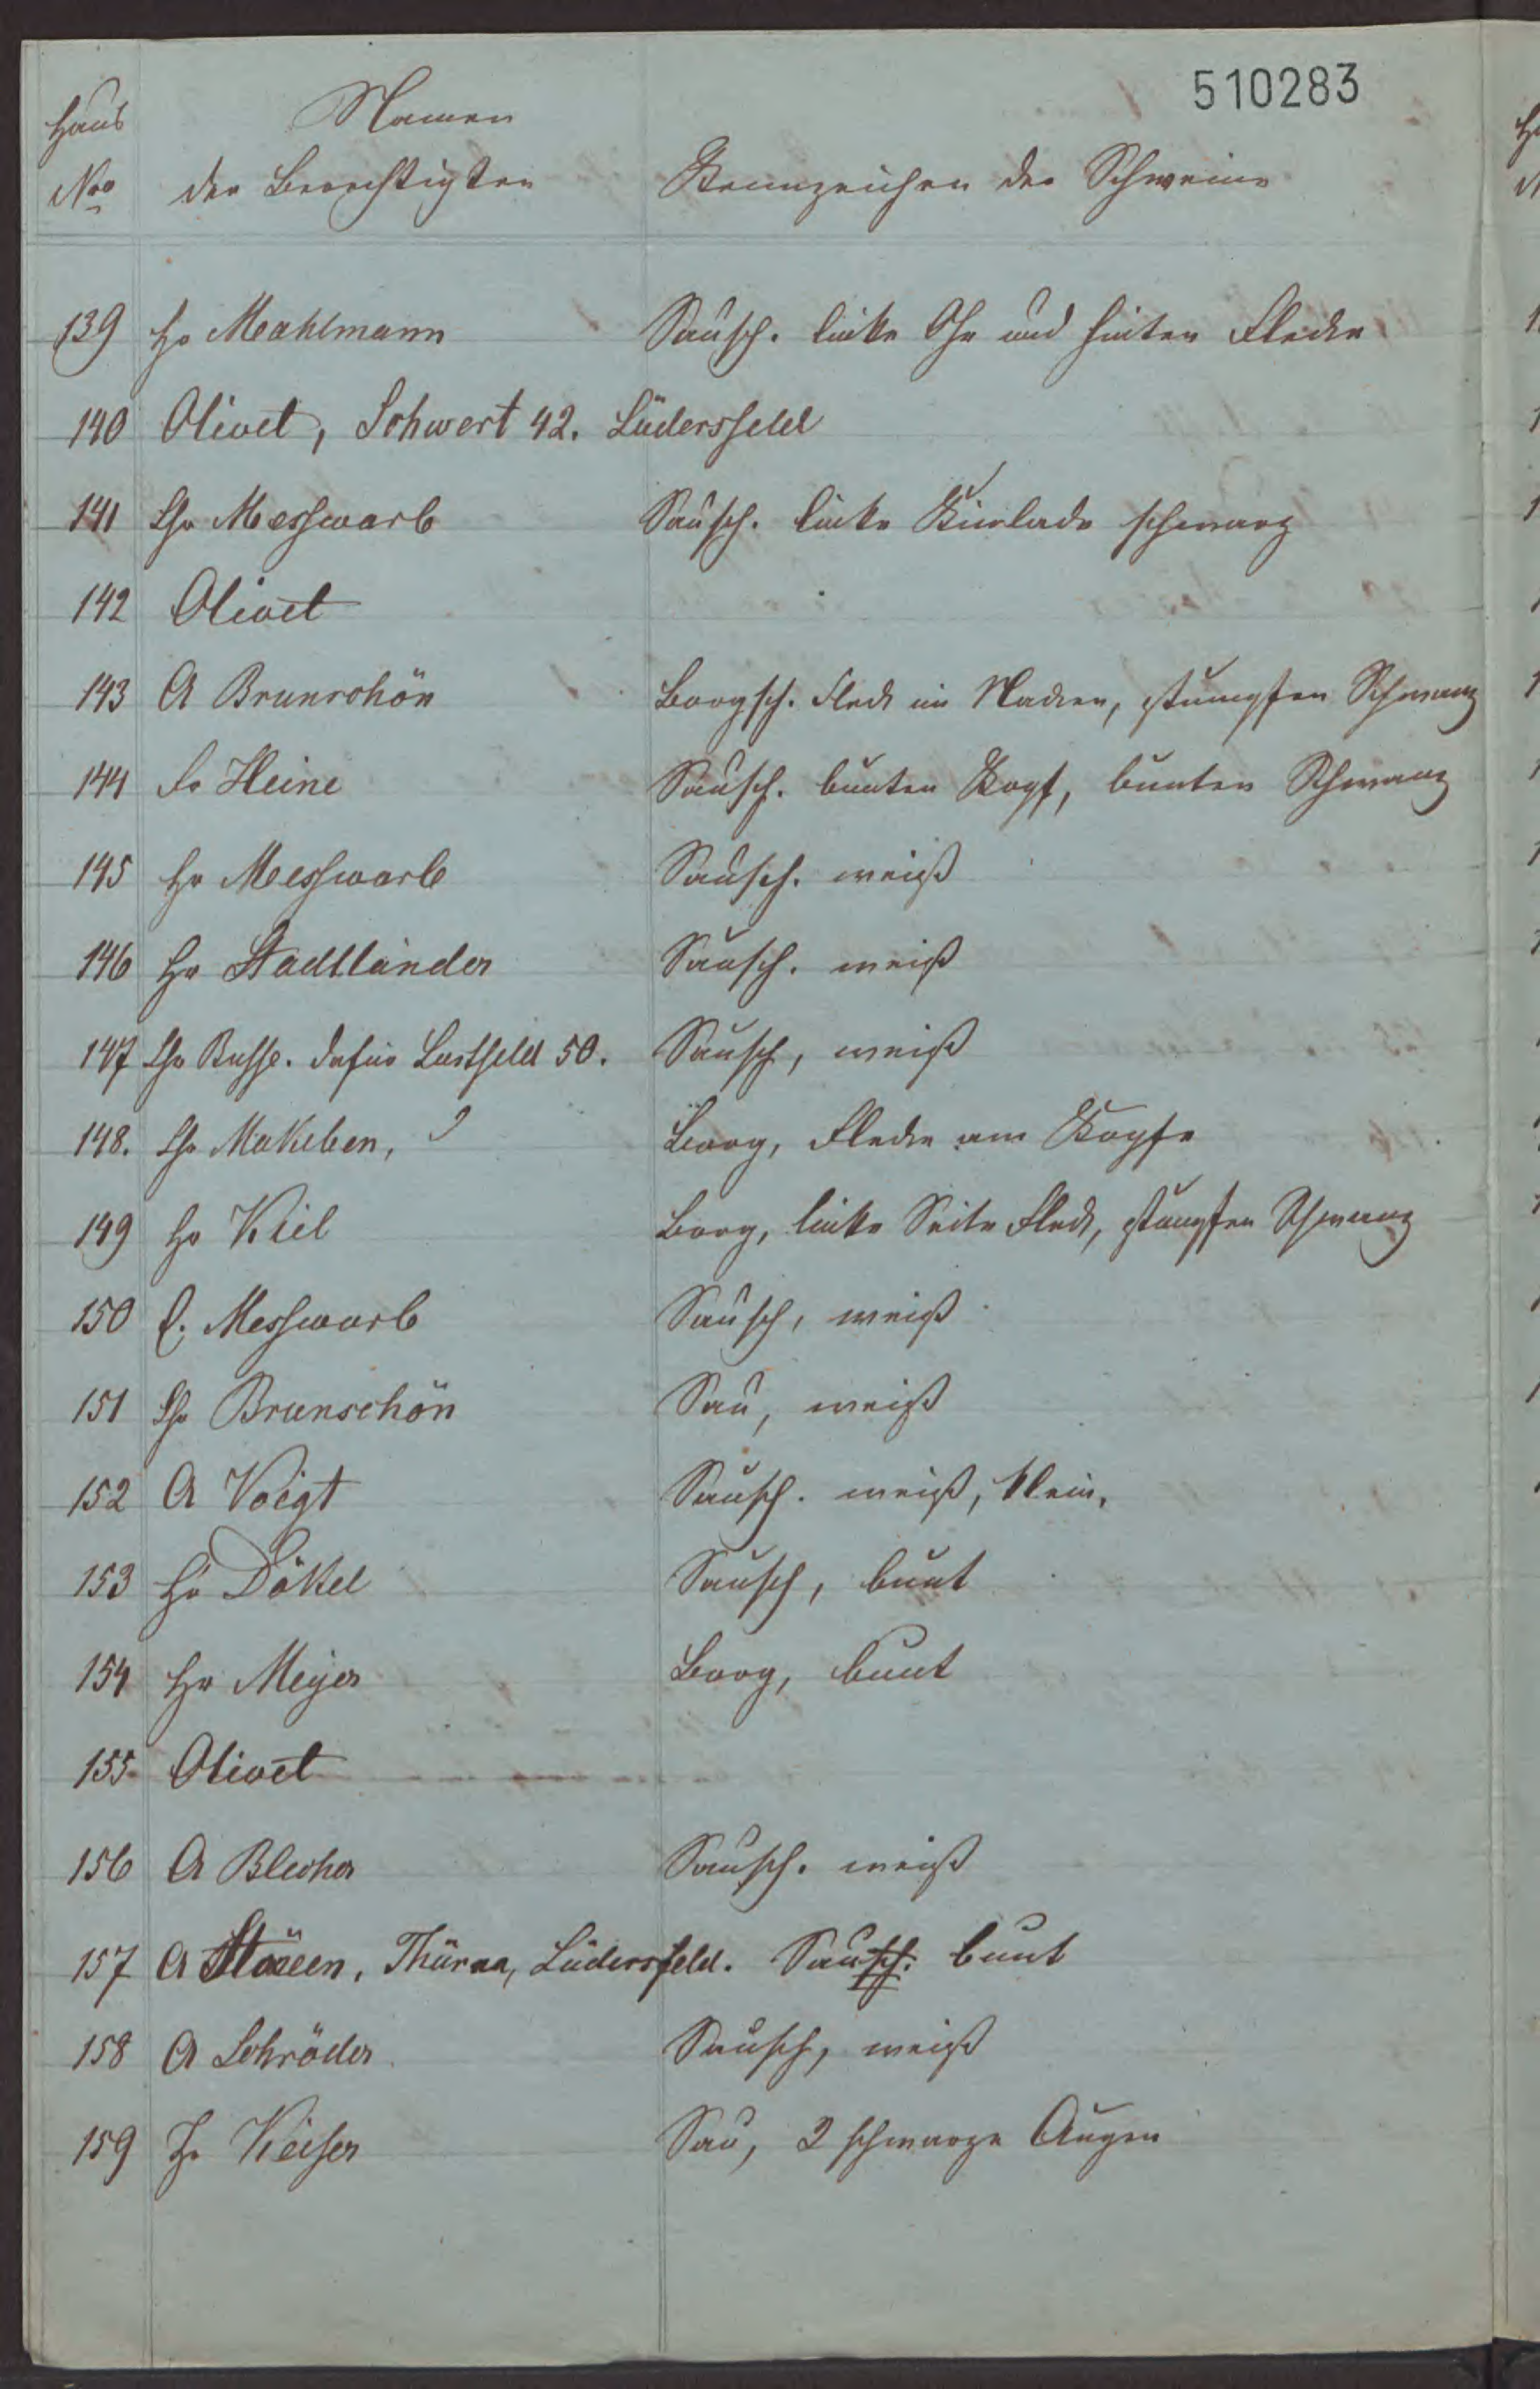 510283
Haus Namen
No der Berechtigten Kennzeichen der Schweine
139 Hr Mahlmann Sausch. linke Ohr und hinten Flecke
140 Olivet, Schwert 42. Lüdersfeld
141 Chr Messwarb Sausch. linke Kinlade schwarz
142 Olivet
143 A Brunschön Borgsch. Fleck im Nacken, stumpfen Schwanz
144 Fr Heine Sausch. bunten Kopf, bunten Schwanz
145 Hr Messwarb Sausch. weiß
146 Hr Stadtländer Sausch. weiß
147 Chr Busse. dafür Lustfeld 50. Sausch, weiß
148. Chr Makeben, Borg, Flecke am Kopfe
149 Hr Kiel Borg, linke Seite Fleck, stumpfen Schwanz
150 C. Messwarb Sausch, weiß
151 Chr Brunschön Sau, weiß
152 A Voigt Sausch. weiß, klein,
153 Hr Dökel Sausch, bunt
154 Hr Meyer Borg, bunt
155 Olivet
156 A Blecher Sausch. weiß
157 A Thürna, Lüdersfeld. Sausch. bunt
158 A Schröder Sausch, weiß
159 Keiser Sau, 2 schwarze Augen